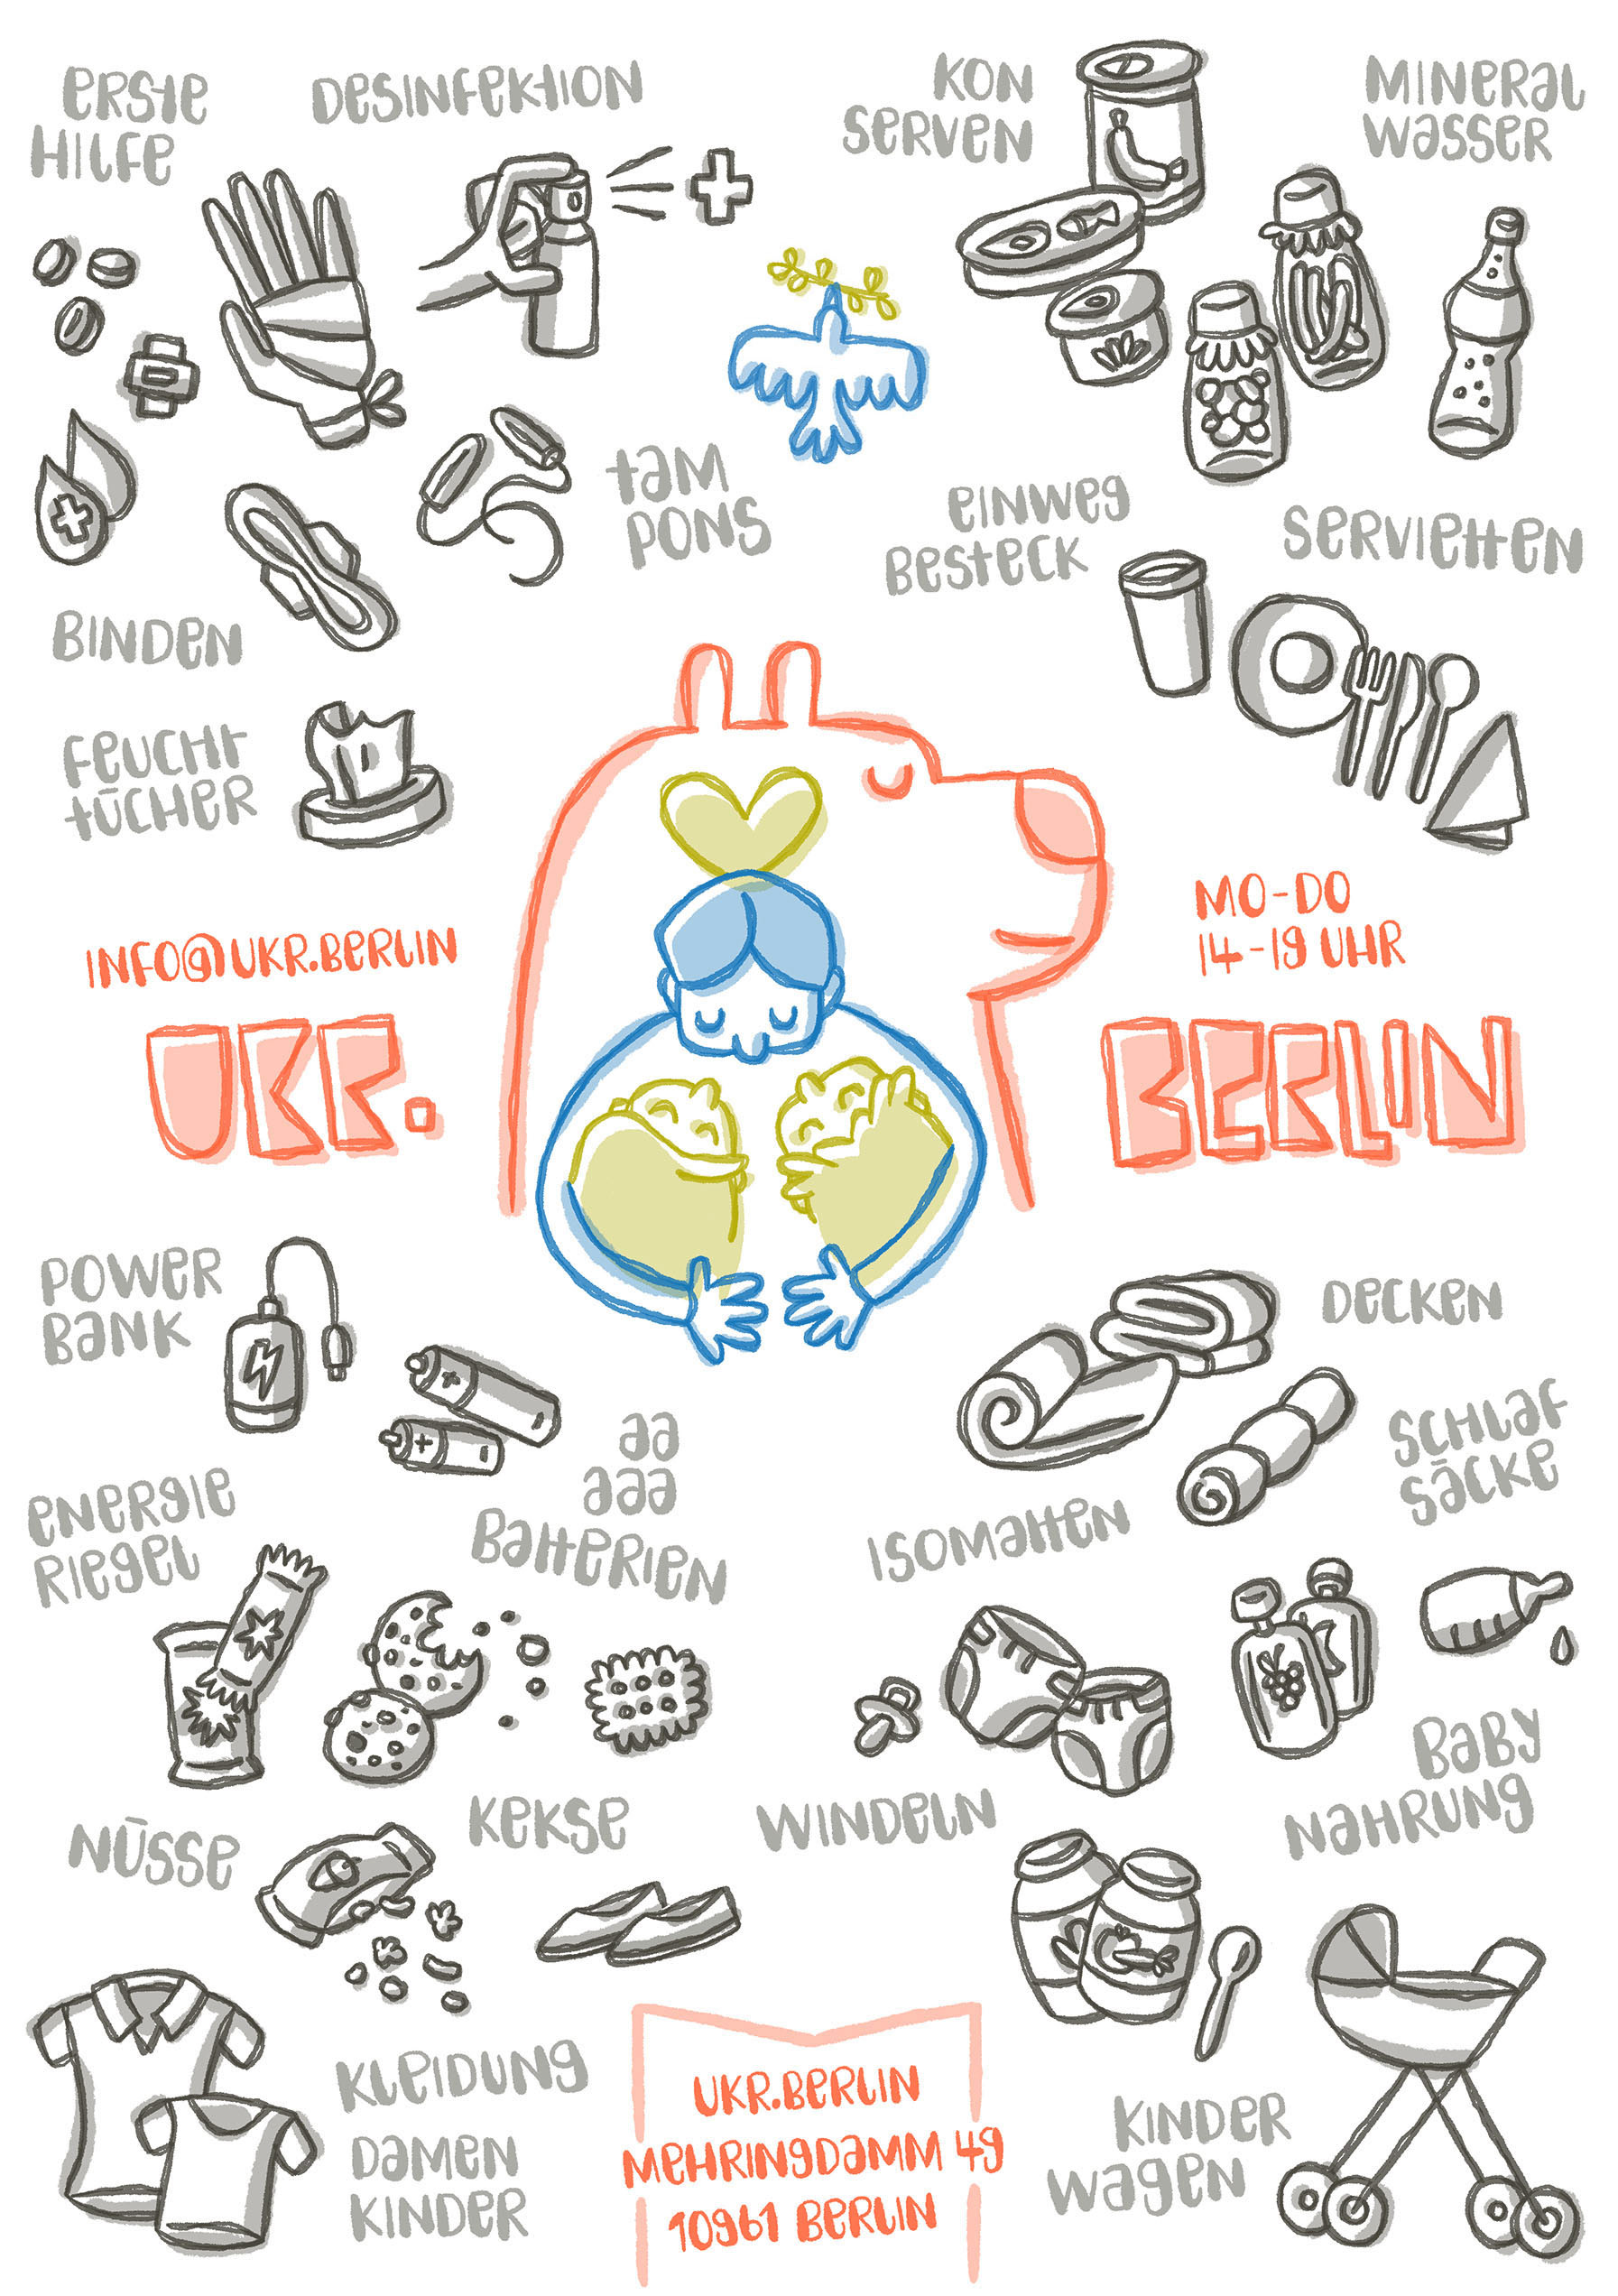 ERSTE
HILFE
DESINFEKTION
KON
SERVEN
MINERAL
WASSER
TAM
PONS
EINWEG
BESTECK
SERVIETTEN
BINDEN
FEUCHT
TÜCHER
INFO@UKR.BERLIN
MO-DO
14-19 UHR
UKR.
BERLIN
POWER
BANK
AA
AAA
BATTERIEN
DECKEN
SCHLAF
SÄCKE
ISOMATTEN
ENERGIE
RIEGEL
NÜSSE
KEKSE
WINDELN
BABY
NAHRUNG
KLEIDUNG
DAMEN
KINDER
UKR.BERLIN
MEHRINGDAMM 49
10961 BERLIN
KINDER
WAGEN